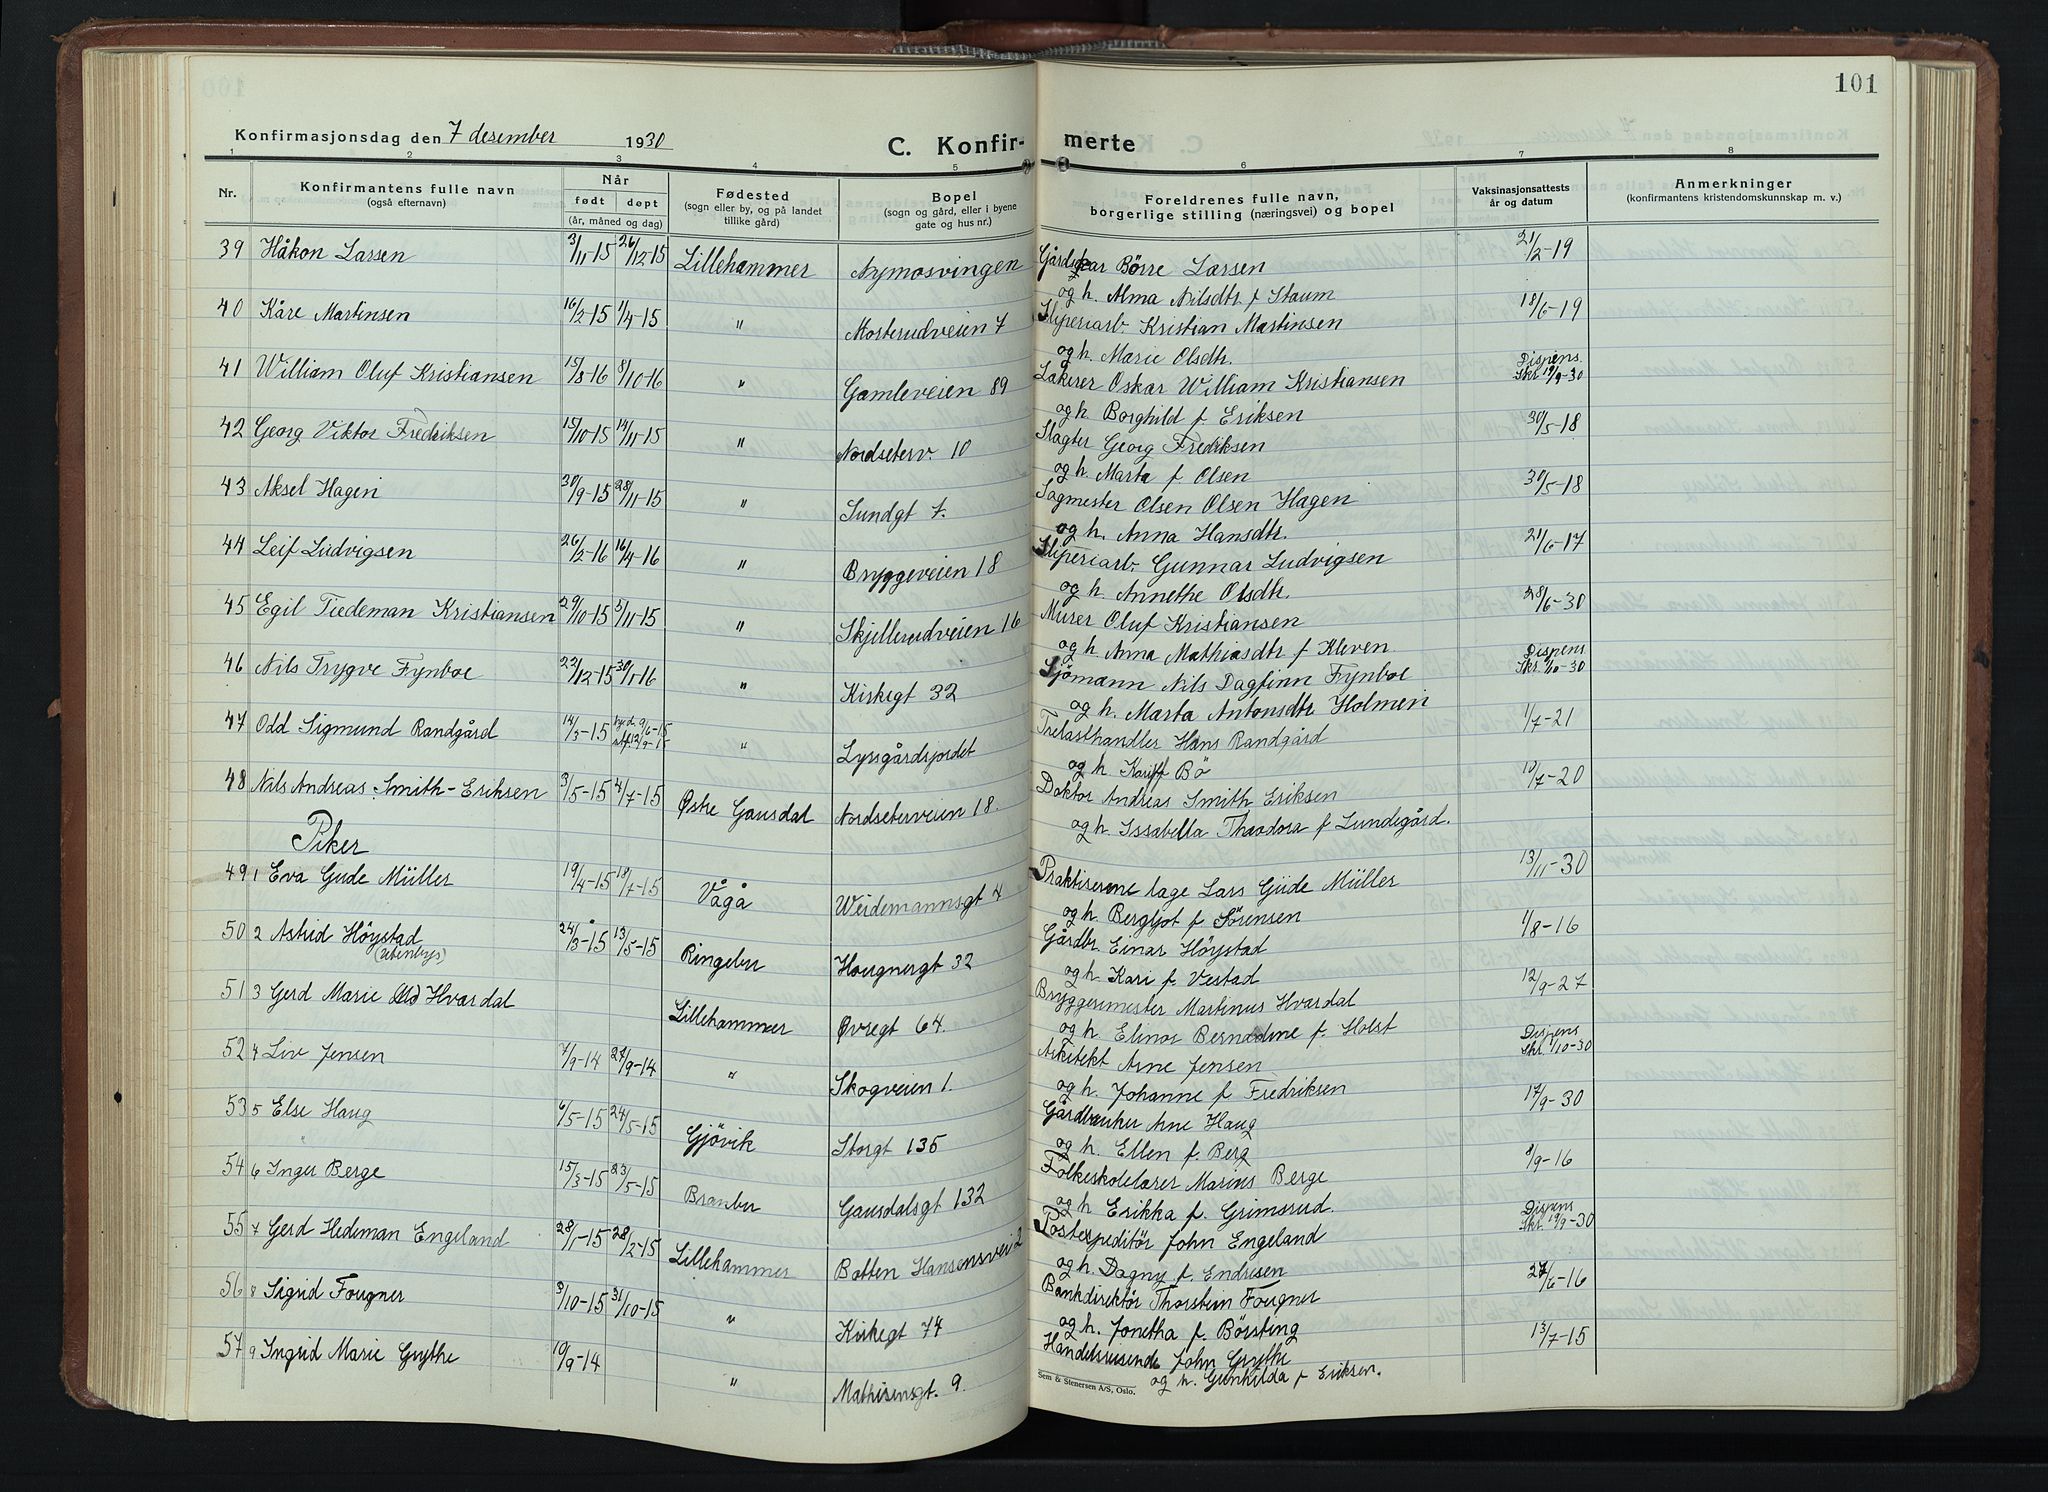 101
Konfirmasjonsdag den 7 desember 1930
C. Konfir- merte
1 2 3 4 5 6 7 8
Nr. Konfirmantens fulle navn (også efternavn) Når født døpt (år, måned og dag) Fødested (sogn eller by, og på landet tillike gård) Bopel (sogn og gård, eller i byene gate og hus nr.) Foreldrenes fulle navn, borgerlige stilling (næringsvei) og bopel Vaksinasjonsattests år og datum Anmerkninger (konfirmantens kristendomskunnskap m. v.)
39 Håkon Larsen 3/11-15 26/12-15 Lillehammer Nymosvingen Børre Larsen 21/2-19
og h. Alma Nilsdtr. f Staum
40 Kåre Martinsen 16/2-15 1/4-15 " Mosterudveien 7 Sliperiarb. Kristian Martinsen 18/6-19
og h. Marie Olsdtr.
41 William Oluf Kristiansen 15/8-16 8/10-16 " Gamleveien 89 Lakerer Oskar William Kristiansen Dispens. Skr 19/9-30
og h. Borghild f Eriksen
42 Georg Viktor Fredriksen 15/10-15 14/11-15 " Nordseterv. 10 Slagter Georg Fredriksen 30/5-18
og h. Marta f Olsen
43 Aksel Hagen 30/9-15 28/11-15 " Sundgt 7. Sagmester Olsen Olsen Hagen 30/5-18
og h. Anna Hansdtr.
44 Leif Ludvigsen 26/2-16 16/4-16 " Bryggeveien 18 Sliperiarb. Gunnar Ludvigsen 21/6-17
og h. Annethe Olsdtr.
45 Egil Tiedeman Kristiansen 29/10-15 3/11-15 " Skjellerudveien 16 Murer Oluf Kristiansen 28/6-30
og h. Anna Mathiasdtr f Kleven
46 Nils Trygve Fynboe 22/12-15 30/1-16 " Kirkegt 32 Sjømann Nils Dagfinn Fynboe Dispens Skr. 1/10-30
og h. Marta Antonsdtr Holmen
47 Odd Sigmund Randgård 14/3-15 9/6-15 12/9-15 " Lysgårdsjordet Trelasthandler Hans Randgård 1/7-21
og h. Kari f Bö
48 Nils Andreas Smith-Eriksen 3/5-15 4/7-15 Østre Gausdal Nordseterveien 18. Doktor Andreas Smith Eriksen 10/7-20
og h. Issabella Theodora f Lundegård.
Piker
49 1 Eva Gude Müller 19/4-15 18/7-15 Vågå Weidemannsgt 4 Praktiserene læge Lars Gude Müller 13/11-30
og h. Bergljot f Sörensen
50 2 Astrid Höystad (utenbys) 24/3-15 13/5-15 Ringebu Hougnergt 32 Gårdbr. Einar Höystad 1/8-16
og h. Kari f Vestad
51 3 Gerd Marie Hvardal Lillehammer Øvregt 64 Bryggerimester Martinus Hvardal 12/9-27
og h. Elinor Bernadine f. Holst
52 4 Liv Jensen 7/9-14 27/9-14 " Skogveien 1. Arkitekt Arne Jensen Dispens Skr. 1/10-30
og h. Johanne f Fredriksen
53 5 Else Haug 6/5-15 24/5-15 Gjövik Storgt 135 Gårdbruker Arne Haug 17/9-30
og h. Ellen f. Berg
54 6 Inger Berge 15/3-15 23/5-15 Branbu Gausdalsgt 132 Folkeskolelærer Marius Berge 8/9-16
og h. Erikka f. Grimsrud.
55 7 Gerd Hedeman Engeland 28/1-15 28/2-15 Lillehammer Botten Hansensvei 2 Postexpeditör John Engeland Dispens Skr. 19/9-30
og h. Dagny f. Endresen
56 8 Sigrid Fougner 3/10-15 31/10-15 " Kirkegt 74 Bankdirektör Thorstein Fougner 27/6-16
og h. Jonetha f. Börsting
57 9 Ingrid Marie Grythe 19/9-14 " Mathisensgt. 9. Handelsreisende John Grythe 13/7-15
og h. Gunhilda f Eriksen.
Sem & Stenersen A/S, Oslo.